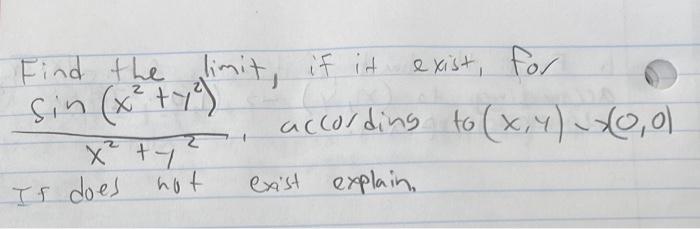 Find the limit, if it exist, for
sin (x² + y²)
x² + y² , according to (x, y) → (0, 0)
If does not exist explain.